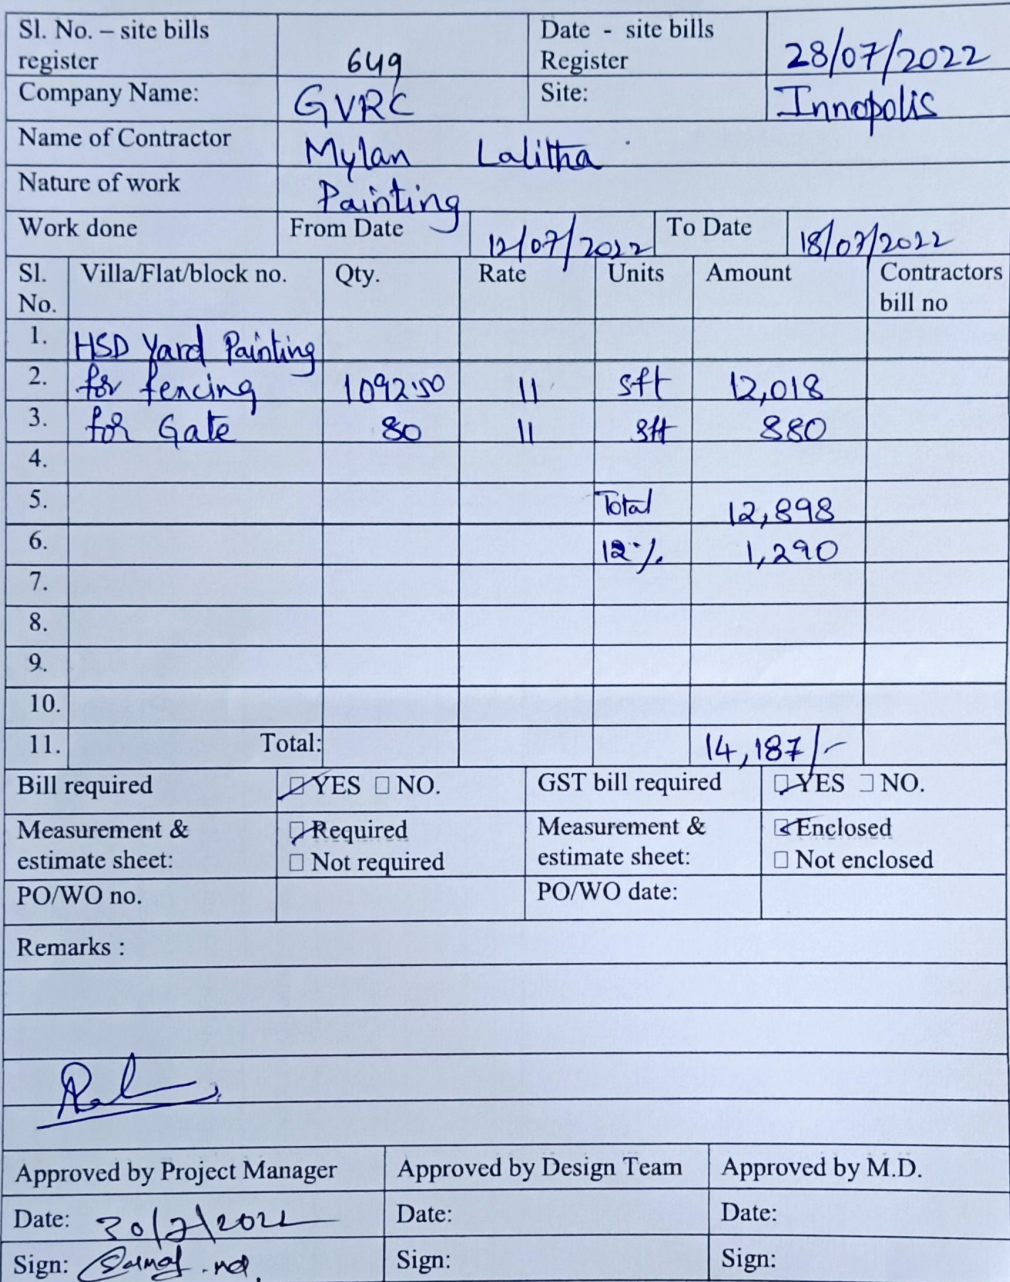 Sl. No. – site bills register 649 Date - site bills Register 28/07/2022
Company Name: GVRC Site: Innopolis
Name of Contractor Mylan Lalitha
Nature of work Painting
Work done From Date 12/07/2022 To Date 18/07/2022
Sl. No. Villa/Flat/block no. Qty. Rate Units Amount Contractors bill no
1. HSD Yard Painting
2. for fencing 1092.50 11 sft 12,018
3. for Gate 80 11 sft 880
4.
5. Total 12,898
6. 12% 1,290
7.
8.
9.
10.
11. Total: 14,187/-
Bill required ☑ YES ☐ NO. GST bill required ☑ YES ☐ NO.
Measurement & estimate sheet: ☑ Required ☐ Not required Measurement & estimate sheet: ☑ Enclosed ☐ Not enclosed
PO/WO no. PO/WO date:
Remarks :
Approved by Project Manager Approved by Design Team Approved by M.D.
Date: 30/7/2022 Date: Date:
Sign: Sign: Sign: